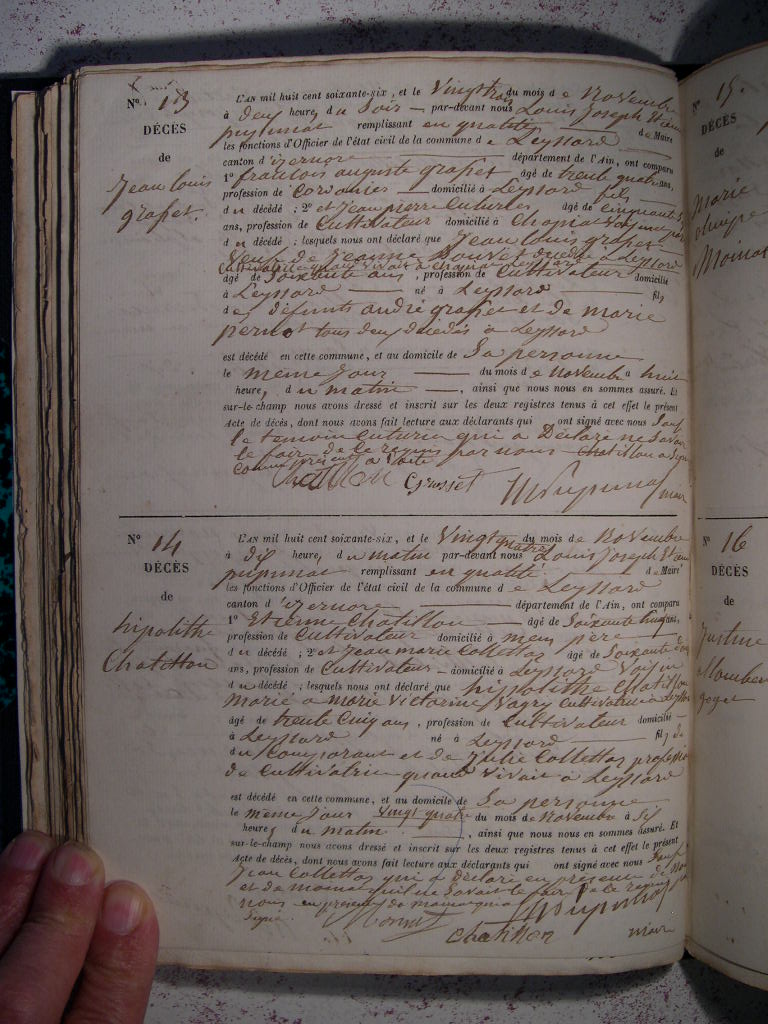 N° 13
DÉCÈS
de
Jean louis
grasset.
L'AN mil huit cent soixante-six, et le vingttrois du mois de Novembre
à deux heures du Soir — par-devant nous Louis Joseph Etienne
pupunat remplissant en qualité de Maire
les fonctions d'Officier de l'état civil de la commune de Leyssard
canton d'izernore département de l'Ain, ont comparu
1° francois auguste grasset âgé de trente quatre ans,
profession de Cordonier domicilié à Leyssard fils
du décédé ; 2° et Jean pierre Cuturier âgé de Cinquante
ans, profession de Cultivateur domicilié à Chamia Voisin
du décédé ; lesquels nous ont déclaré que Jean louis grasset
Veuf de Jeanne Bouvet décédée à Leyssard
Cultivatrice quand vivait à
âgé de Soixante ans, profession de Cultivateur domicilié
à Leyssard né à Leyssard fils
de défunts andré grasset et de marie
pernot tous deux décédés à Leyssard
est décédé en cette commune, et au domicile de Sa personne
le meme Jour du mois de Novembre à huit
heure, du matin, ainsi que nous nous en sommes assuré. Et
sur-le-champ nous avons dressé et inscrit sur les deux registres tenus à cet effet le présent
Acte de décès, dont nous avons fait lecture aux déclarants qui ont signé avec nous Sauf
le temoin Cuturier qui a Déclaré ne Savoir
le faire de le requis par nous Chatillon a Signé
Comme présent a l'acte
Grasset
Pupunat maire
N° 14
DÉCÈS
de
hipolithe
Chatillon
L'AN mil huit cent soixante-six, et le Vingt quatre du mois de Novembre
à dix heure, du matin par-devant nous Louis Joseph Etienne
pupunat remplissant en qualité de Maire
les fonctions d'Officier de l'état civil de la commune de Leyssard
canton d'izernore département de l'Ain, ont comparu
1° Etienne Chatillon âgé de Soixante huit ans,
profession de Cultivateur domicilié à meme père
du décédé ; 2° et Jean marie Collettas âgé de Soixante
ans, profession de Cultivateur domicilié à Leyssard Voisin
du décédé ; lesquels nous ont déclaré que hipolithe Chatillon
Marié a marie Victorine Vagry Cultivatrice a Leyssard
âgé de trente Cinq ans, profession de Cultivateur domicilié
à Leyssard né à Leyssard fils de
du Comparant et de Julie Collettas profession
de Cultivatrice quand vivait a Leyssard
est décédé en cette commune, et au domicile de Sa personne
le meme Jour Vingt quatre du mois de Novembre à Six
heures du matin, ainsi que nous nous en sommes assuré. Et
sur-le-champ nous avons dressé et inscrit sur les deux registres tenus à cet effet le présent
Acte de décès, dont nous avons fait lecture aux déclarants qui ont signé avec nous Sauf
Jean Collettas qui a déclaré en présence de
et de qu'il ne Savait le faire de le requis par
nous en présence de qui a
Signé.
Chatillon
Pupunat
maire
N° 15.
DÉCÈS
de
Marie
olimpe
Moinat
N° 16
DÉCÈS
de
Justine